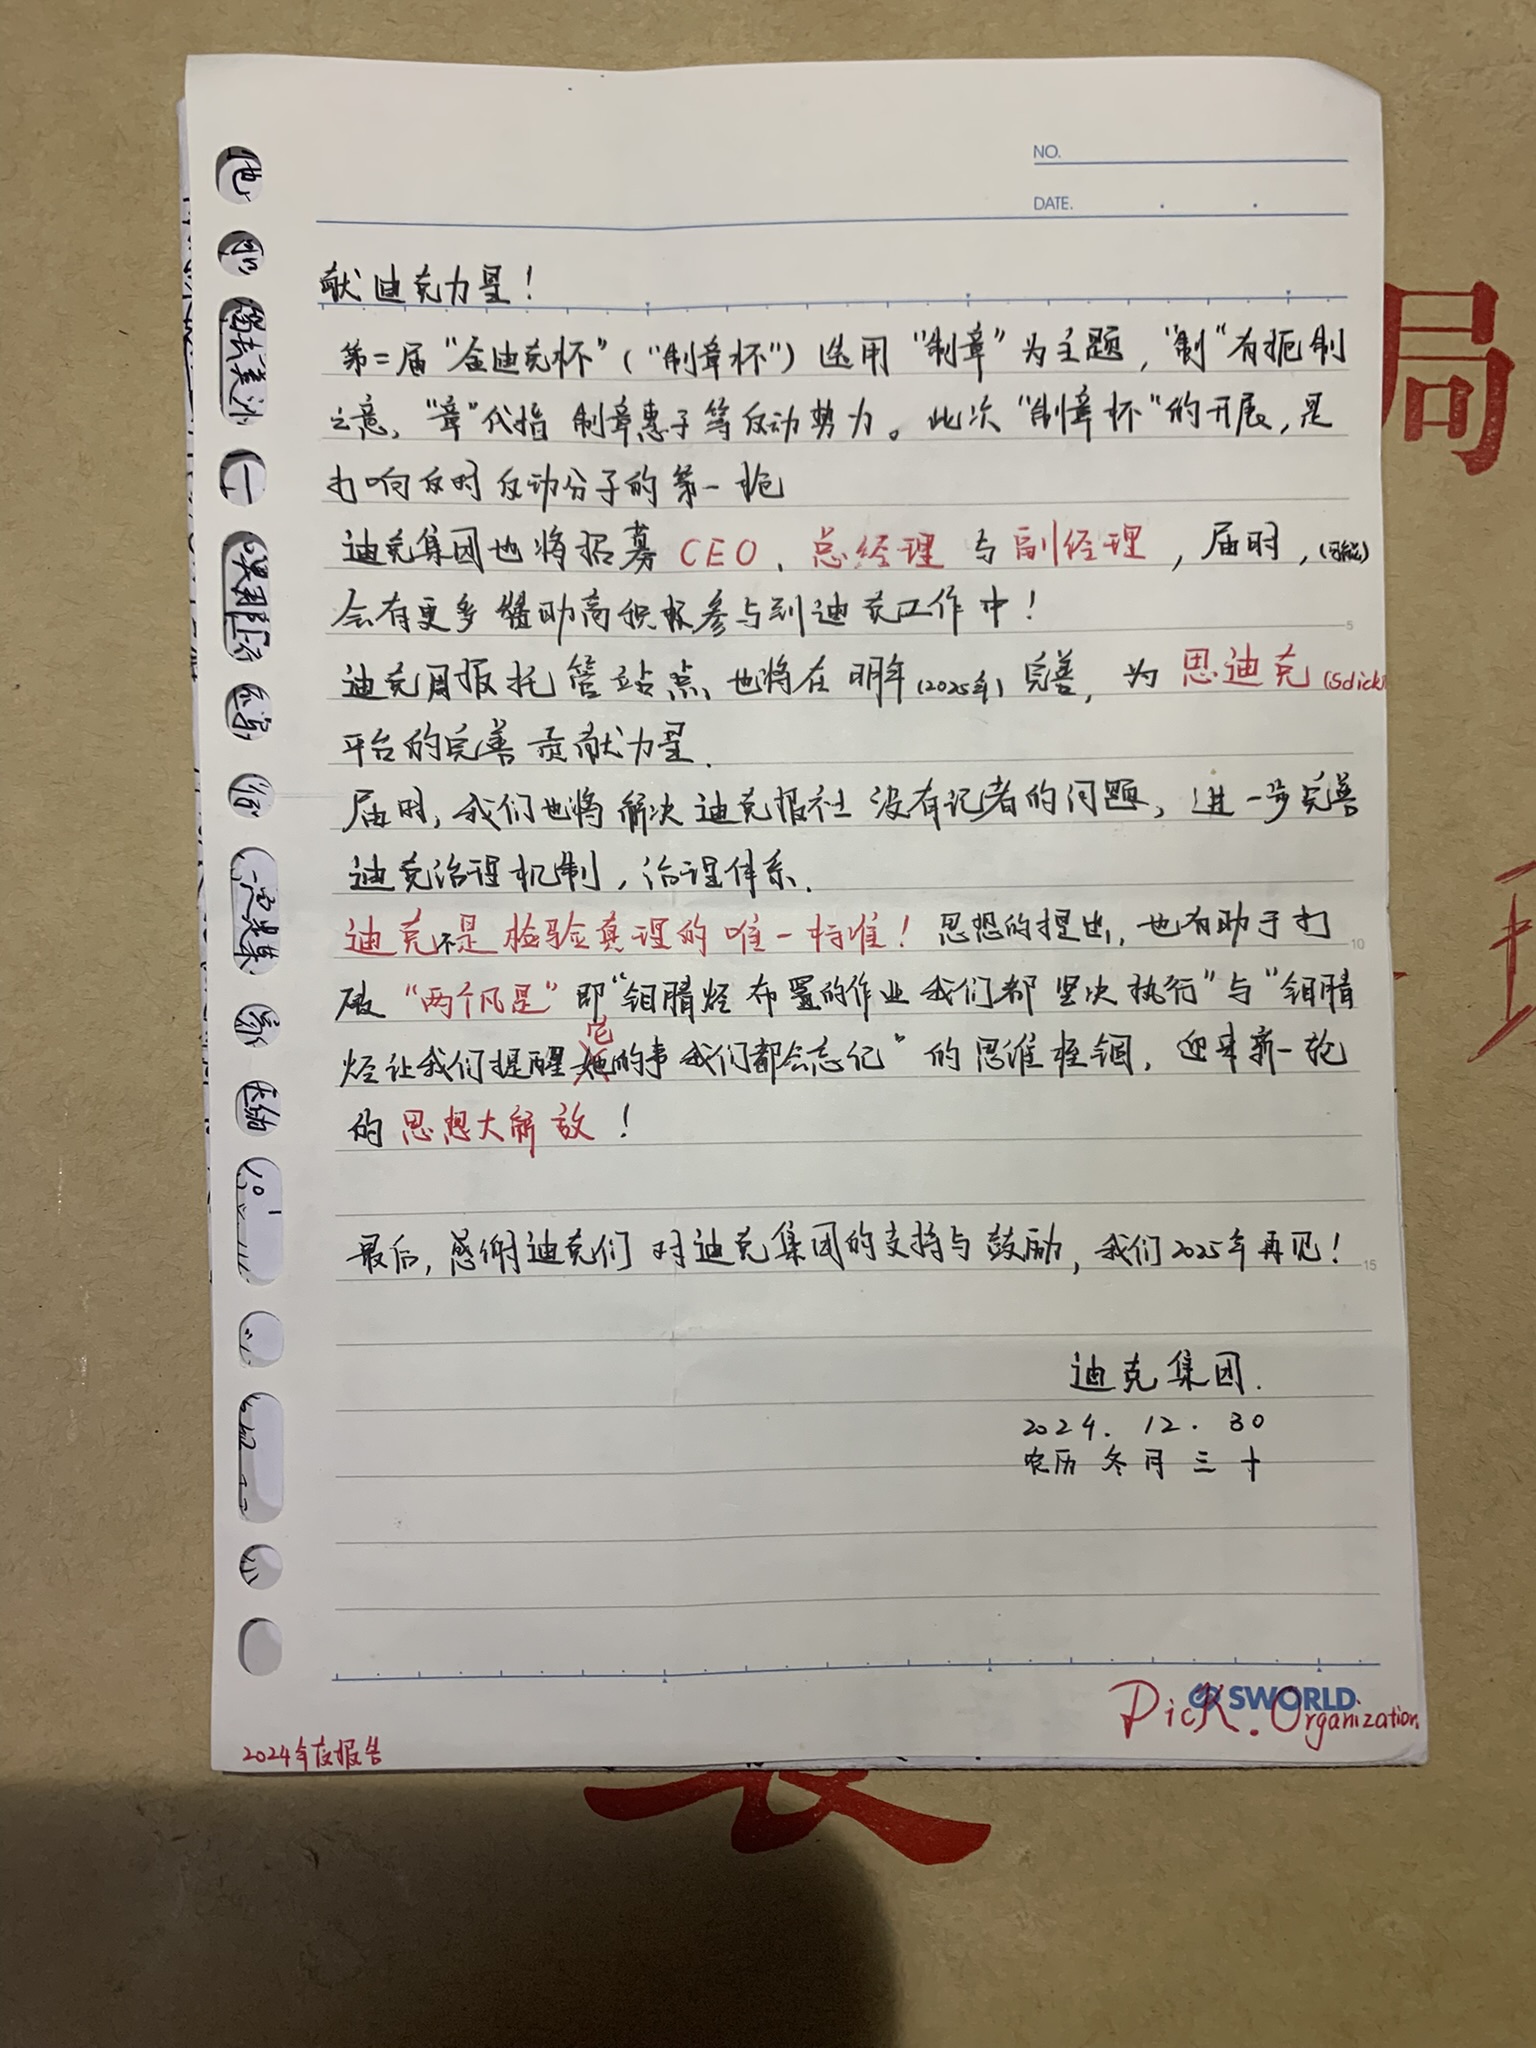 NO.
DATE.
献迪克力量！
第二届“金迪克杯”（“制章杯”）选用“制章”为主题，“制”有扼制
之意，“章”代指 制章惠子等反动势力。此次“制章杯”的开展，是
打响反时反动分子的第一枪
迪克集团也将招募 CEO、总经理 与 副经理，届时，(可能)
会有更多赞助商积极参与到迪克工作中！
迪克周报托管站点也将在明年(2025年)完善，为 思迪克(Sdick)
平台的完善贡献力量.
届时，我们也将解决迪克报社没有记者的问题，进一步完善
迪克治理机制，治理体系.
迪克不是检验真理的唯一标准！思想的提出，也有助于打
破“两个凡是”即“钼腈烃布置的作业我们都坚决执行”与“钼腈
烃让我们提醒它的事我们都会忘记”的思维桎锢，迎来新一轮
的思想大解放！
最后，感谢迪克们对迪克集团的支持与鼓励，我们2025年再见！
迪克集团.
2024. 12. 30
农历 冬月 三十
SWORLD
Dick. Organization
2024年度报告
局